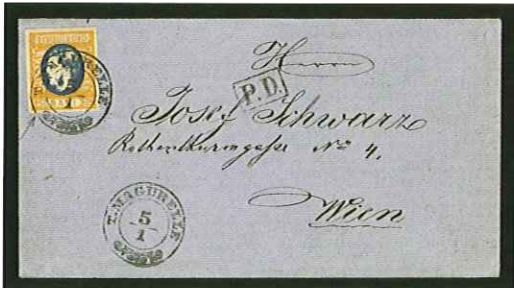 Herrn
P.D.
Josef Schwarz
Rothenthurmgasse No 4.
Wien
T. MAGURELLE
5/1